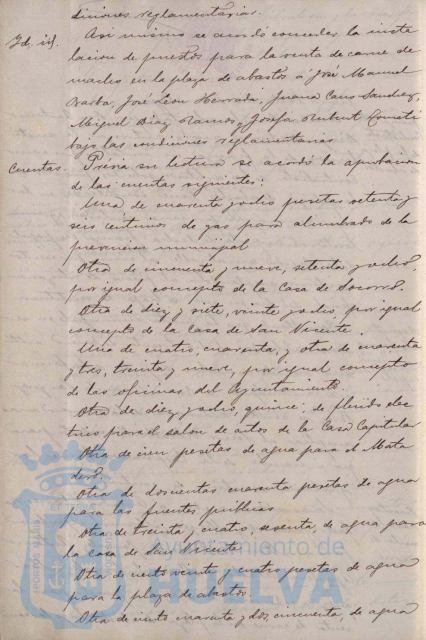 diciones reglamentarias.
Id. id. Asi mismo se acordó conceder la insta
lacion de puestos para la venta de carne de
macho en la plaza de abastos á José Manuel
Barba, José Leon Herrada, Juana Cano Sanchez,
Miguel Diaz Ramos y Josefa Rubert
bajo las condiciones reglamentarias
Cuentas. Prévia su lectura se acordó la aprobacion
de las cuentas siguientes:
Una de cuarenta y ocho pesetas setenta y
seis centimos de gas para alumbrado de la
prevencion municipal
Otra de cincuenta y nueve, setenta y ocho,
por igual concepto de la Casa de Socorro.
Otra de diez y siete, veinte y ocho, por igual
concepto de la Casa de San Vicente.
Una de cuatro, cuarenta, y otra de cuarenta
y tres, treinta y nueve, por igual concepto
de las oficinas del Ayuntamiento
Otra de diez y ocho, quince, de fluido elec
trico para el salon de actos de la Casa Capitular
Otra de cien pesetas de agua para el Mata
dero.
Otra de doscientas cuarenta pesetas de agua
para las fuentes públicas
Otra de treinta y cuatro, sesenta, de agua para
la casa de San Vicente
Otra de ciento veinte y cuatro pesetas de agua
para la plaza de abastos.
Otra de ciento cuarenta y dos, cincuenta de agua
Ayuntamiento de
HUELVA